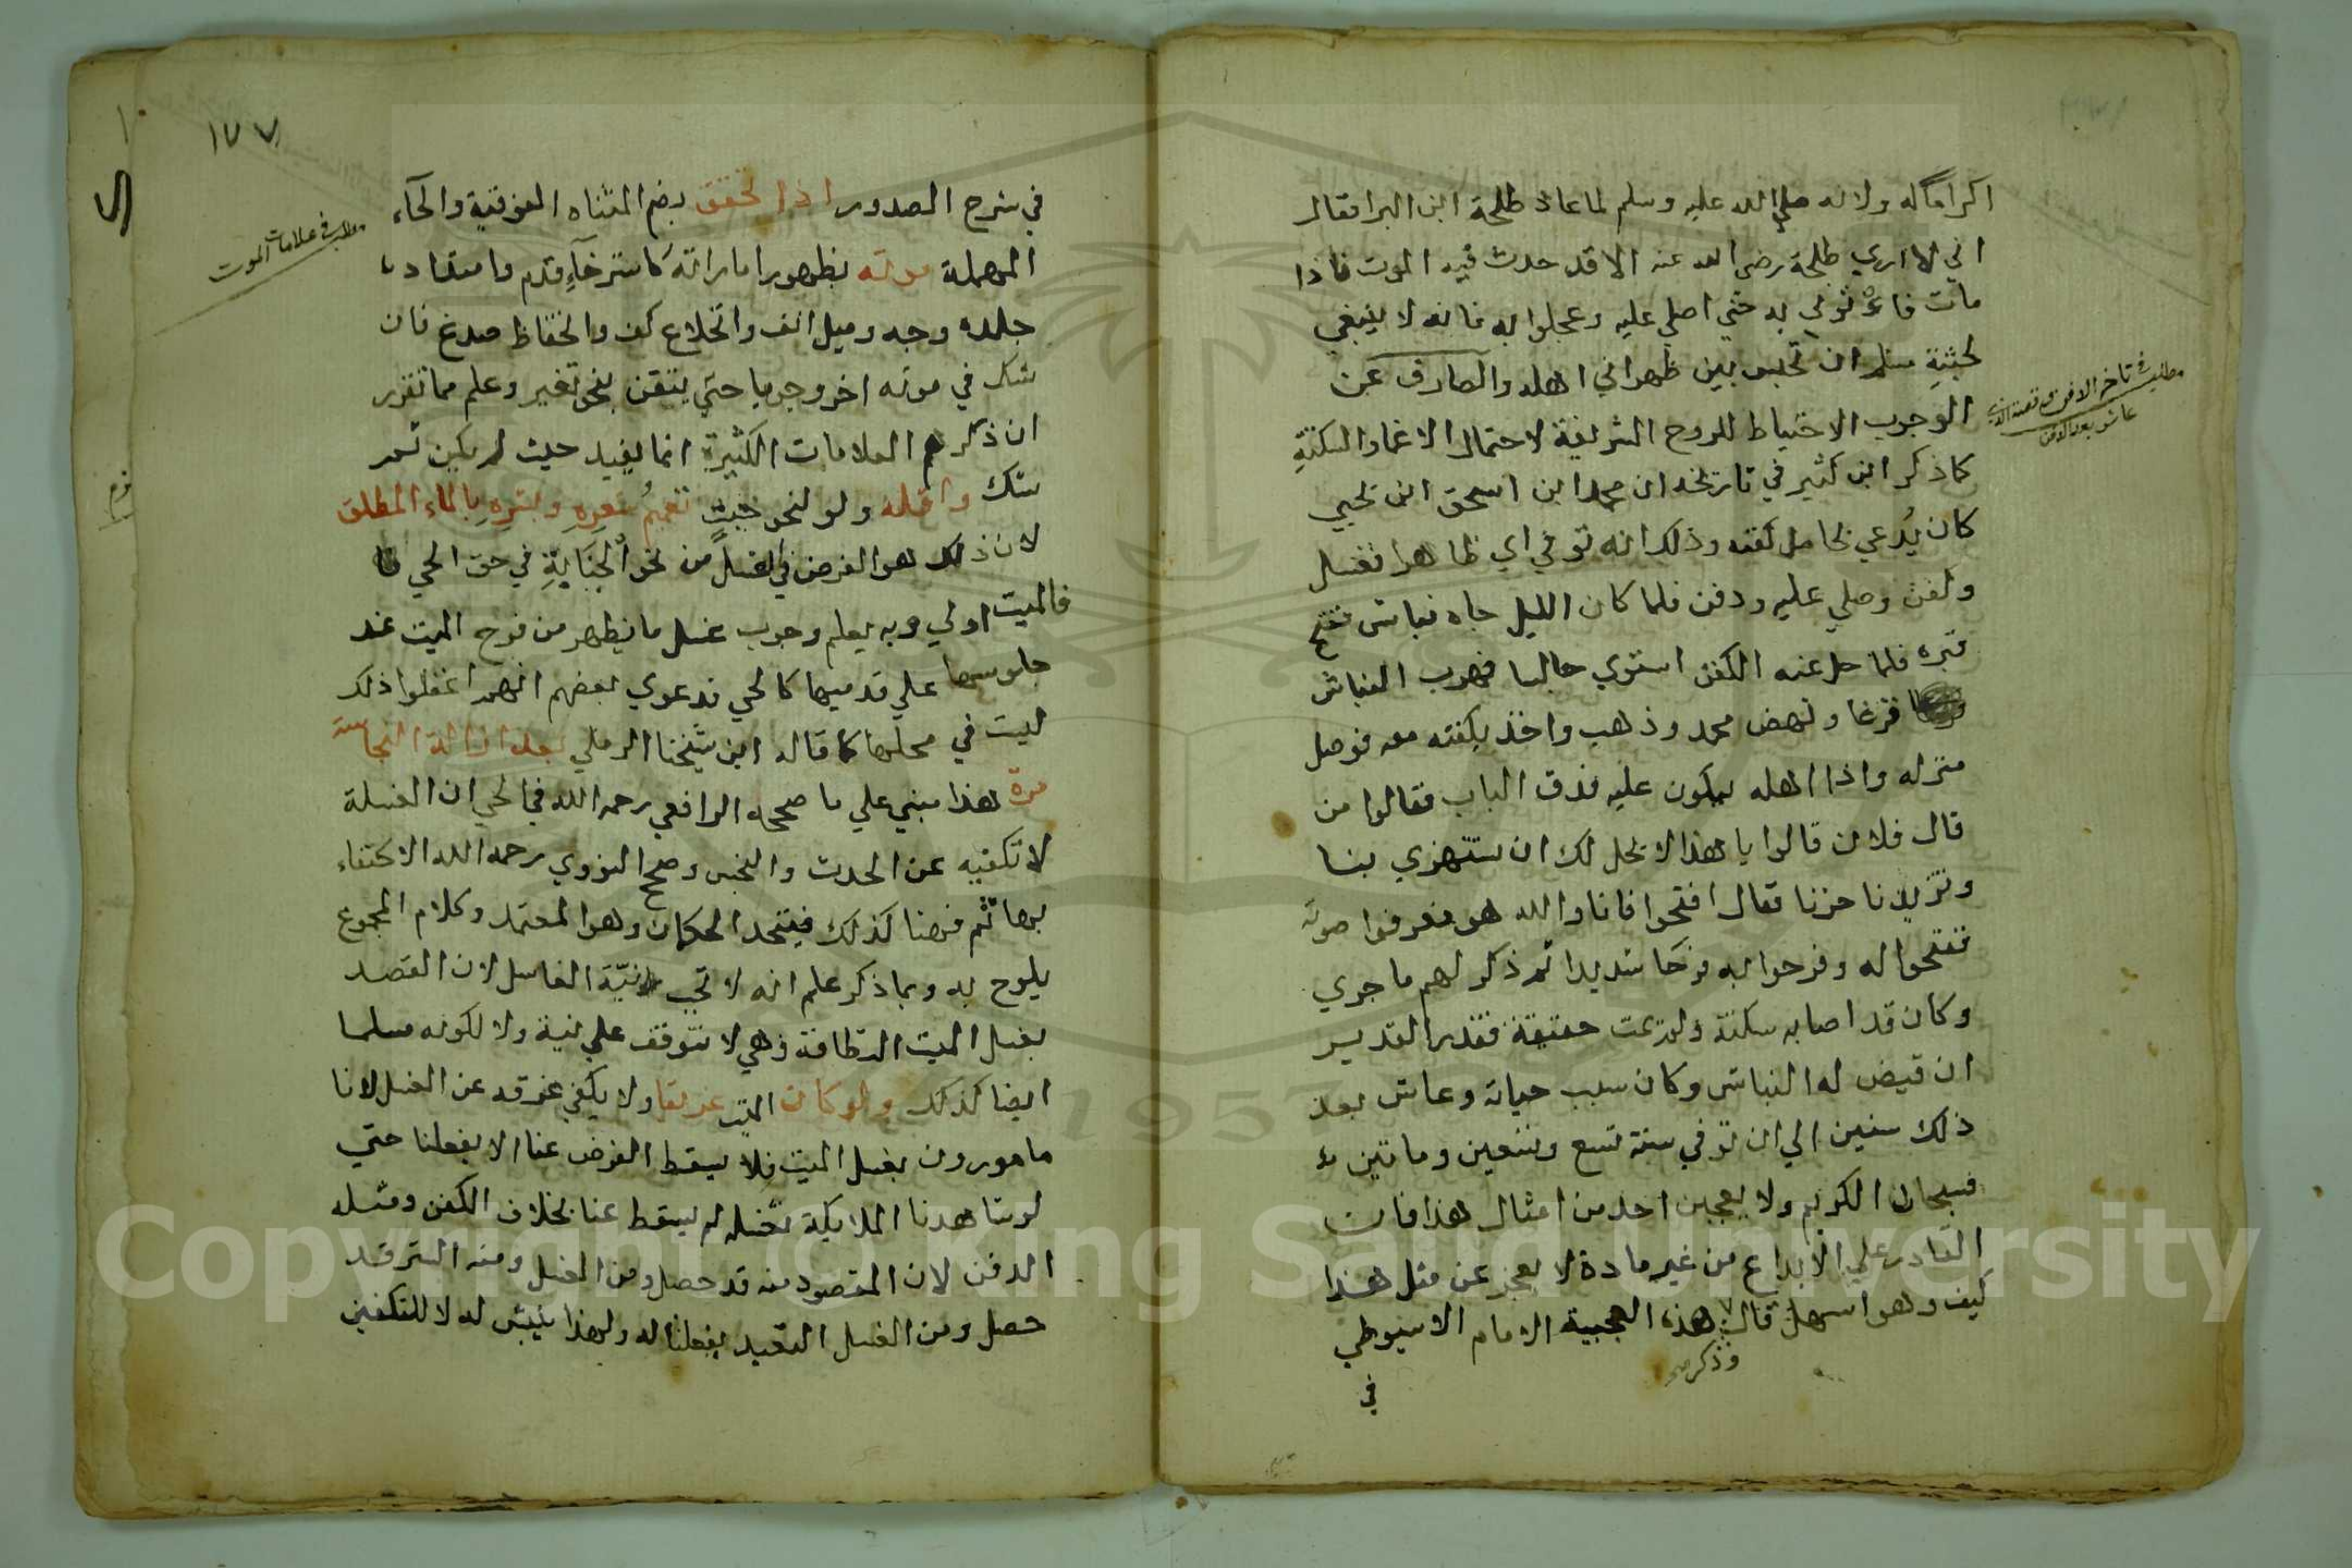 اكراما له ولانه صلي الله عليه وسلم لما عاد طلحة ابن البرا فقال
اني لا اري طلحة رضي الله عنه الا قد حدث فيه الموت فاذا
مات فاذنوني به حتي اصلي عليه وعجلوا به فانه لا ينبغي
لجثة مسلم ان تحبس بين ظهراني اهله والصارف عن
الوجوب الاحتياط للروح الشريفة لاحتمال الاغما والسكتة
كما ذكر ابن كثير في تاريخه ان محمد ابن اسحق ابن يحيي
كان يُدعي بحامل كفنه وذلك انه توفي اي ظاهرا فغسل
وكفن وصلي عليه ودفن فلما كان الليل جاه نباش ففتح
قبره فلما حل عنه الكفن استوي جالسا فهرب النباش
فزعا ونهض محمد وذهب واخذ بكفنه معه فوصل
منزله واذا اهله يبكون عليه فدق الباب فقالوا من
قال فلان قالوا يا هذا لا يحل لك ان تستهزي بنا
وتزيدنا حزنا فقال افتحوا فانا والله هو فعرفوا صوته
ففتحوا له وفرحوا به فرحا شديدا ثم ذكر لهم ما جري
وكان قد اصابه سكتة ولم يمت حقيقة فقدر القدير
ان قيض له النباش وكان سبب حياته وعاش بعد
ذلك سنين الي ان توفي سنة تسع وتسعين وماتين
فسبحان الكريم ولا يعجبن احد من امثال هذا فان
القادر علي الابداع من غير مادة لا يعجز عن مثل هذا
كيف وهو اسهل قال هذه العجيبة الامام الاسيوطي
وذكر
في
مطلب في تاخر الدفن وقصة الذي
عاش بعد الدفن
١٧٧
في شرح الصدور اذا تحقق بضم المثناه الفوقية والحآء
المهملة موته بظهور اماراته كاسترخآءِ قدم وامتداد
جلده وجه وميل انف وانخلاع كف وانخفاظ صدغ فان
شك في موته اخر وجوبا حتي يتقن بنحو تغير وعلم مما تقرر
ان ذكرهم العلامات الكثيرة انما يفيد حيث لم يكن ثم
شك واقله ولو لنحو جنب تعميمُ شعرِهِ وبشرِهِ بالماء المطلق
لان ذلك هو الفرض في الغسل من نحو الجنابةِ في حق الحي
فالميت اولي وبه يعلم وجوب غسل ما يظهر من فرج الميت عند
جلوسها علي قدميها كالحي فدعوي بعضهم انهم اغفلوا ذلك
ليست في محلها كما قاله ابن شيخنا الرملي بعد ازالة النجاسة
مرة هذا مبني علي ما صححه الرافعي رحمه الله في الحي ان الغسلة
لا تكفيه عن الحدث والنجس وصحح النووي رحمه الله الاكتفاء
بها ثم فهنا كذلك فيتحد الحكمان وهو المعتمد وكلام المجموع
يلوح به وبما ذكر علم انه لا تجب نيّة الغاسل لان القصد
بغسل الميت النظافة وهي لا تتوقف علي نية ولا لكونه مسلما
ايضا كذلك ولو كان الميت غريقا ولا يكفي غرقه عن الغسل لانا
مامورون بغسل الميت فلا يسقط الفرض عنا الا بفعلنا حتي
لو شاهدنا الملايكة تغسله لم يسقط عنا بخلاف الكفن ومثله
الدفن لان المقصود منه قد حصل ومن الغسل ومنه الستر قد
حصل ومن الغسل التعبد بفعلنا له ولهذا ينبش له لا للتكفين
مطلب في علامات الموت
Copyright © King Saud University
1957